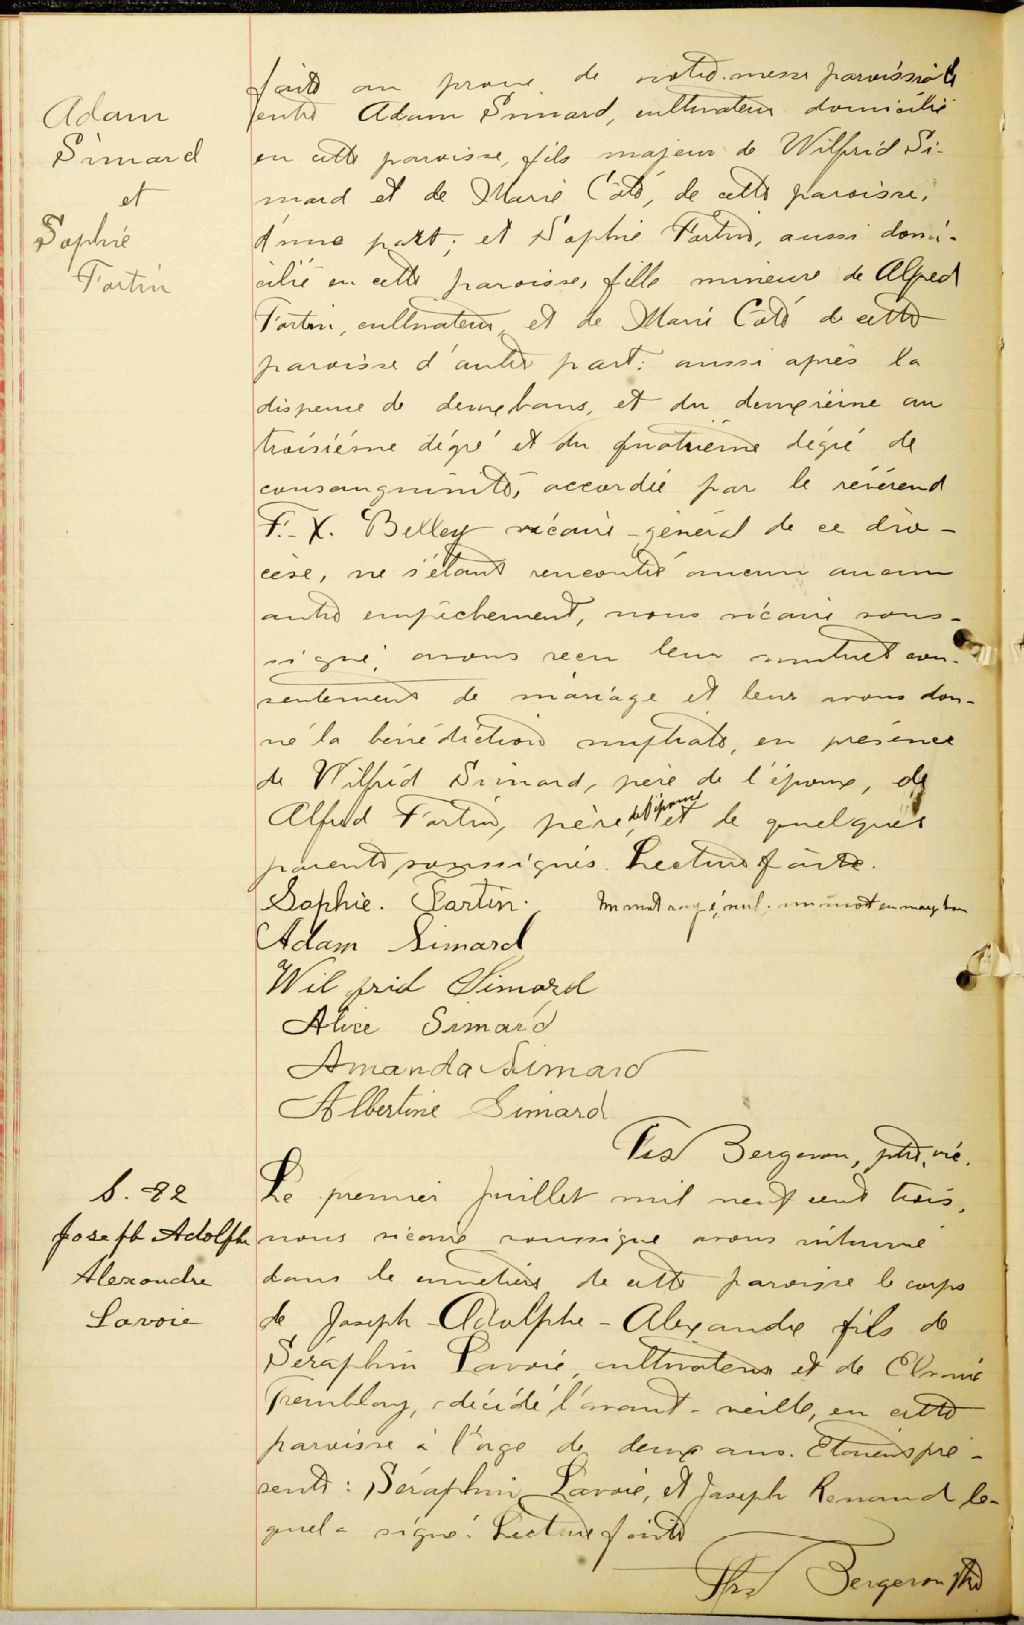 Adam
Simard
et
Sophie
Fortin
faite au prone de notre messe paroissiale
entre Adam Simard, cultivateur domicilié
en cette paroisse, fils majeur de Wilfrid Si-
mard et de Marie Côté, de cette paroisse,
d'une part; et Sophie Fortin, aussi domi-
cilié en cette paroisse, fille mineure de Alfred
Fortin, cultivateur, et de Marie Côté de cette
paroisse d'autre part: aussi après la
dispense de deux bans, et du deuxième au
troisième dégré et du quatrième dégré de
consanguinité, accordée par le révérend
F.-X. Belley vicaire-général de ce dio-
cèse, ne s'étant rencontré aucun aucun
autre empêchement, nous vicaire sous-
signé, avons reçu leur mutuel con-
sentement de mariage et leur avons don-
né la bénédiction nuptiale, en présence
de Wilfrid Simard, père de l'époux, de
Alfred Fortin, père, de l'épouse et de quelques
parents soussignés. Lecture faite.
Sophie. Fortin. Un mot rayé, nul. un mot en marge bon
Adam Simard
Wilfrid Simard
Alice Simard
Amanda Simard
Albertine Simard
Ths Bergeron, ptre, vic.
S. 22
Joseph Adolphe
Alexandre
Lavoie
Le premier Juillet mil neuf cent trois,
nous vicaire soussigné avons inhumé
dans le cimetière de cette paroisse le corps
de Joseph-Adolphe-Alexandre fils de
Séraphin Lavoie, cultivateur et de
Tremblay, décédé l'avant-veille, en cette
paroisse à l'âge de deux ans. Etaient pré-
sents: Séraphin Lavoie, et Joseph Renaud le-
quel a signé. Lecture faite
Ths Bergeron ptre